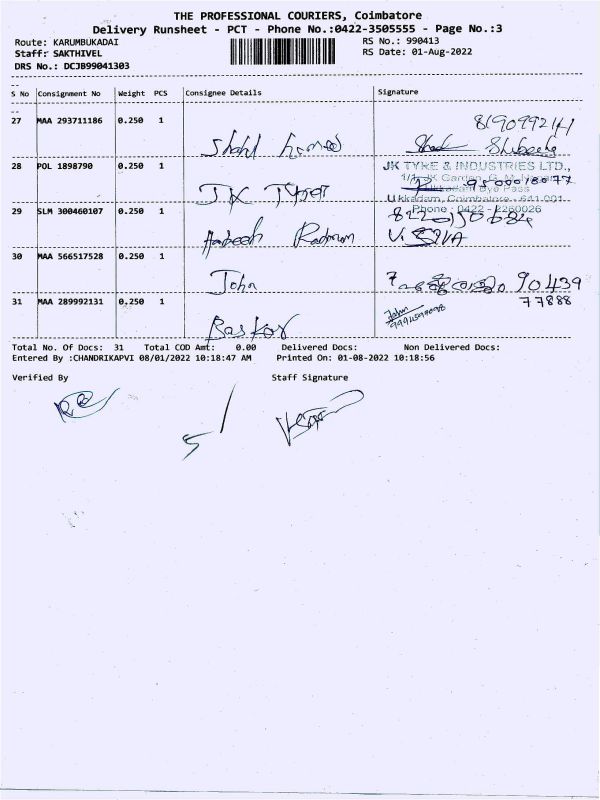 THE PROFESSIONAL COURIERS, Coimbatore
Delivery Runsheet - PCT - Phone No.:0422-3505555 - Page No.:3
Route: KARUMBUKADAI RS No.: 990413
Staff: SAKTHIVEL RS Date: 01-Aug-2022
DRS No.: DCJB99041303
S No Consignment No Weight PCS Consignee Details Signature
27 MAA 293711186 0.250 1
28 POL 1898790 0.250 1 JK Tyre
JK TYRE & INDUSTRIES LTD.,
Ukkadam Bye Pass
Ukkadam, Coimbatore - 641 001.
Phone : 0422 - 2260026
29 SLM 300460107 0.250 1
30 MAA 566517528 0.250 1 John
90439
77888
31 MAA 289992131 0.250 1 Baskar
John
Total No. Of Docs: 31 Total COD Amt: 0.00 Delivered Docs: Non Delivered Docs:
Entered By :CHANDRIKAPVI 08/01/2022 10:18:47 AM Printed On: 01-08-2022 10:18:56
Verified By Staff Signature